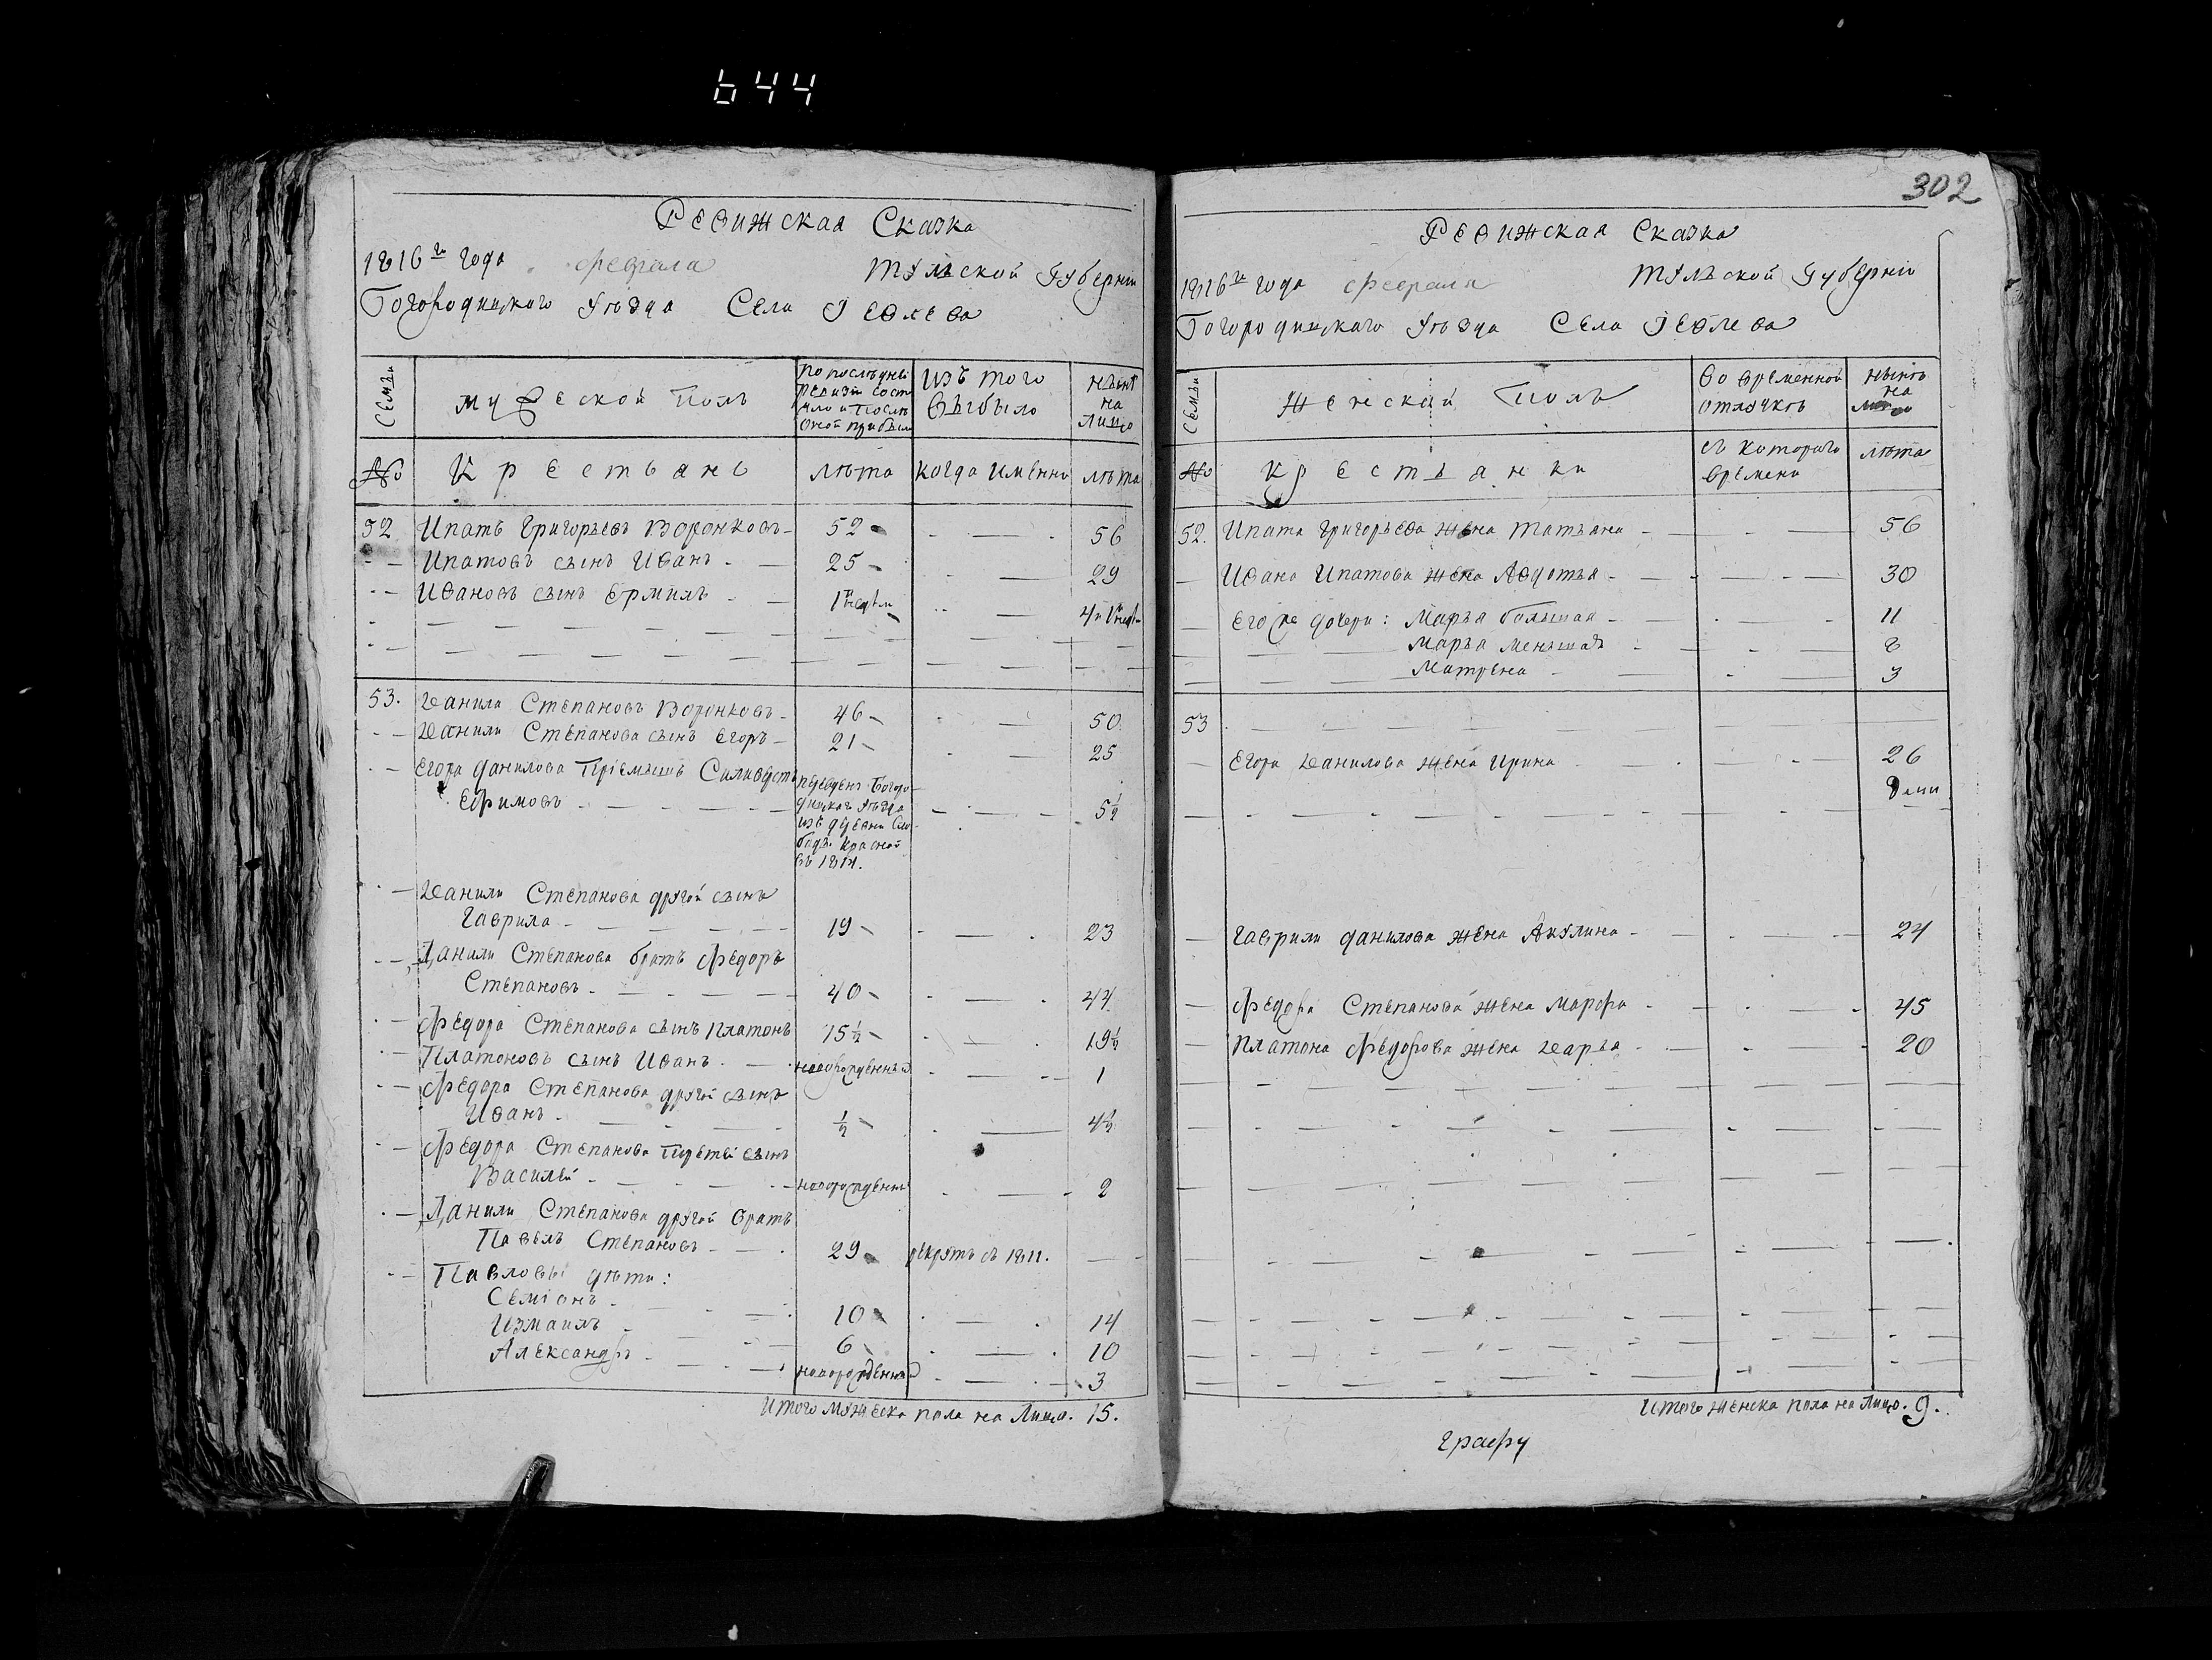 644
Ревижская Сказка
1816го года февраля Тульской Губерніи
Богородицкаго Уѣзда Села Іевлева
Семьи
мужеской Полъ
По послѣдней ревизіи состояло и послѣ оной прибыло
Изъ того выбыло
нынѣ на лицо
№
Крестьяне
лѣта
когда именно
лѣта
52 Ипатъ Григорьевъ Воронковъ 52 56
Ипатовъ сынъ Иванъ 25 29
Ивановъ сынъ Ермилъ 1 недѣли 4 и 1 недѣ
53. Данила Степановъ Воронковъ 46 50
Данилы Степанова сынъ Егоръ 21 25
Егора Данилова Пріемышъ Силивѣстръ
Ефимовъ 5½
переведенъ Богородицкаго Уѣзда изъ деревни Слободы Красной въ 1814.
Данилы Степанова другой сынъ
Гаврила 19 23
Данилы Степанова братъ Федоръ
Степановъ 40 44
Федора Степанова сынъ Платонъ 15½ 19½
Платоновъ сынъ Иванъ новорожденный 1
Федора Степанова другой сынъ
Иванъ ½ 4½
Федора Степанова третьй сынъ
Василей новорожденный 2
Данилы Степанова другой братъ
Павелъ Степановъ 29 рекрутъ съ 1811.
Павловы дѣти:
Семіонъ 10 14
Измаилъ 6 10
Александръ новорожденный 3
Итого мужеска пола на Лицо. 15.
302
Ревижская Сказка
1816го года февраля Тульской Губерніи
Богородицкаго Уѣзда Села Іевлева
Семьи
Женской Полъ
Во временной отлучкѣ
нынѣ на лицо
№
Крестьянки
съ котораго времени
лѣта
52. Ипата Григорьева жена Татьяна 56
Ивана Ипатова жена Авдотья 30
Его же дочери: Марья большая 11
Марья меньшая 8
Матрена 3
53
Егора Данилова жена Ирина 26
Гаврилы Данилова жена Акулина 24
Федора Степанова жена Марфа 45
Платона Федорова жена Дарья 20
Итого женска пола на Лицо. 9.
графу